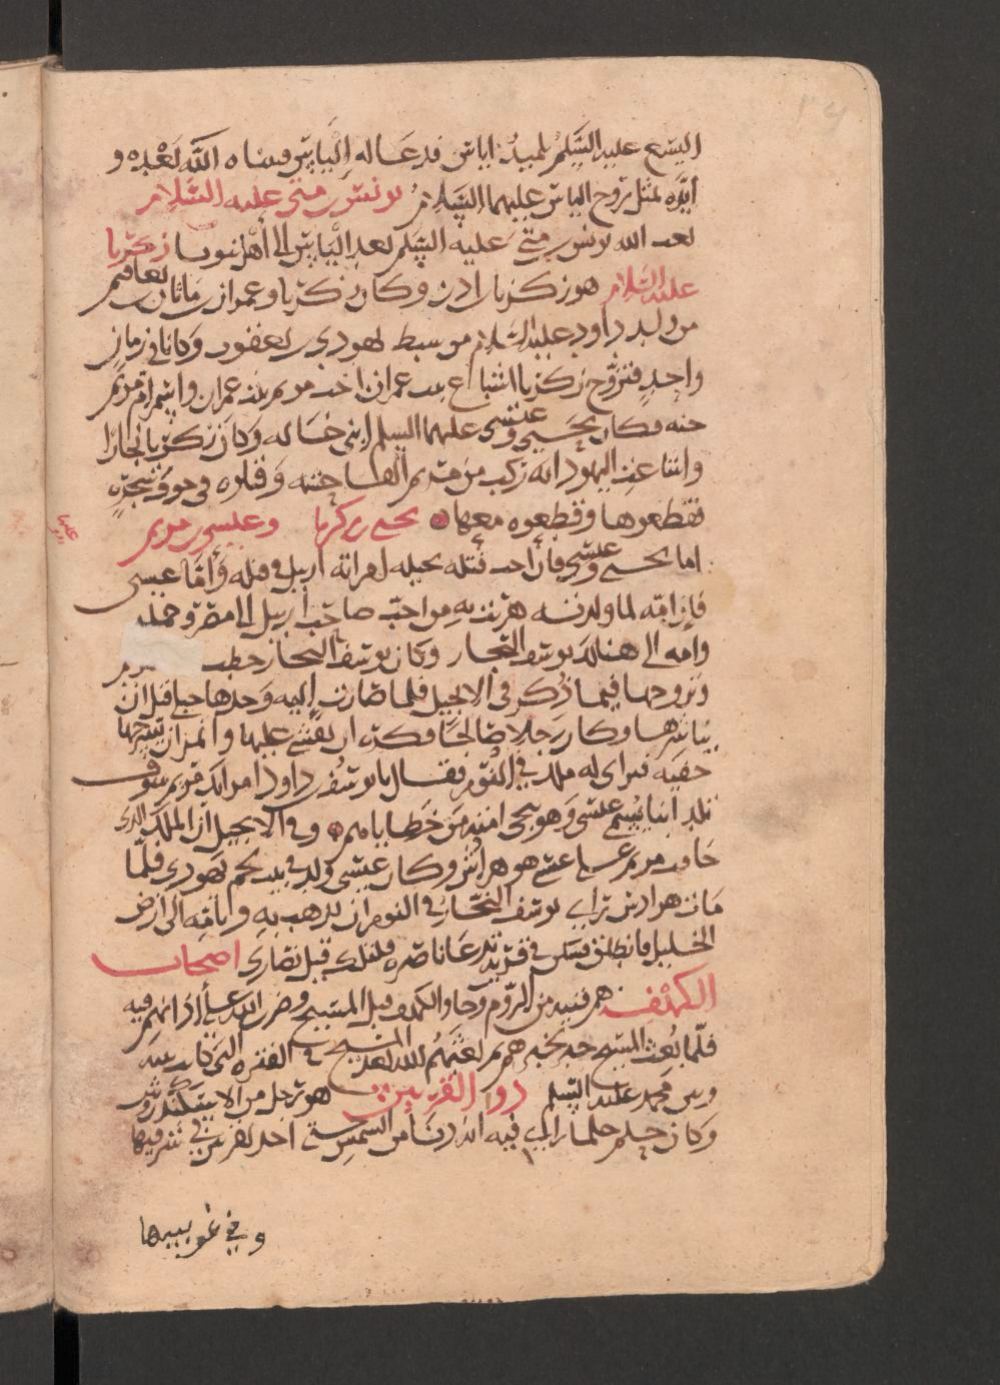 اليسع عليه السلم تلميذ الياس فدعا له الياس فنباه الله بعده و
ايده بمثل روح الياس عليهما السلام يونس بن متى عليه السلام
بعث الله يونس بن متى عليه السلم بعد الياس الى أهل نينوى زكريا
عليه السلام هو زكريا بن ادن وكان زكريا وعمران بن ماثان
من ولد داود عليه السلام من سبط يهودى بن يعقوب وكانا في زمان
واحد فتزوج زكريا اشباع بنت عمران اخت مريم بنت عمران واسم ام مريم
حنه فكان يحيى وعيسى عليهما السلم ابنى خاله وكان زكريا نجارا
واشاعت اليهود انه ركب من مريم الفاحشه وقتلوه في جوف شجره
فقطعوها وقطعوه معها يحيى بن زكريا وعيسى بن مريم
عليهما
اما يحيى وعيسى فان احب قتله بحيله امراته أربيل في قتله وأما عيسى
فإن امه لما ولدته هربت به من احب صاحب أربيل الى مصر وحمله
وامه الى هنالك يوسف النجار وكان يوسف النجار خطب
وتزوجها فيما ذكر في الانجيل فلما صارت إليه وجدها حبلى قبل ان
يباشرها وكان رجلا صالحا فكره ان يفشي عليها وأتمر ان يسرحها
خفيه فتراى له ملك في النوم فقال يا يوسف بن داود امراتك مريم سوف
تلد ابنا يسمى عيسى وهو ينجى امته من خطاياهم وفي الانجيل أن الملك الذى
خاف مريم على عيسى هو هرادس وكان عيسى ولد في بيت لحم يهودى فلما
مات هرادس تراى ليوسف النجار في النوم ان يذهب به وبامه الى ارض
الخليل فانطلق فسكن في قرية تدعا ناصره فلذلك قيل نصارى اصحاب
الكهف هم فتيه من الروم دخلوا الكهف قبل المسيح وضرب الله على أذانهم فيه
فلما بعث المسيح خبر بخبرهم ثم بعثهم الله بعد المسيح في الفتره التي كانت بينه
وبين محمد عليه السلم ذو القرنين هو رجل من الاسكندروش
وكان حلم حلما راى فيه انه دنا من الشمس حتى اخذ بقرنيها في شرقيها
وفي غربيها